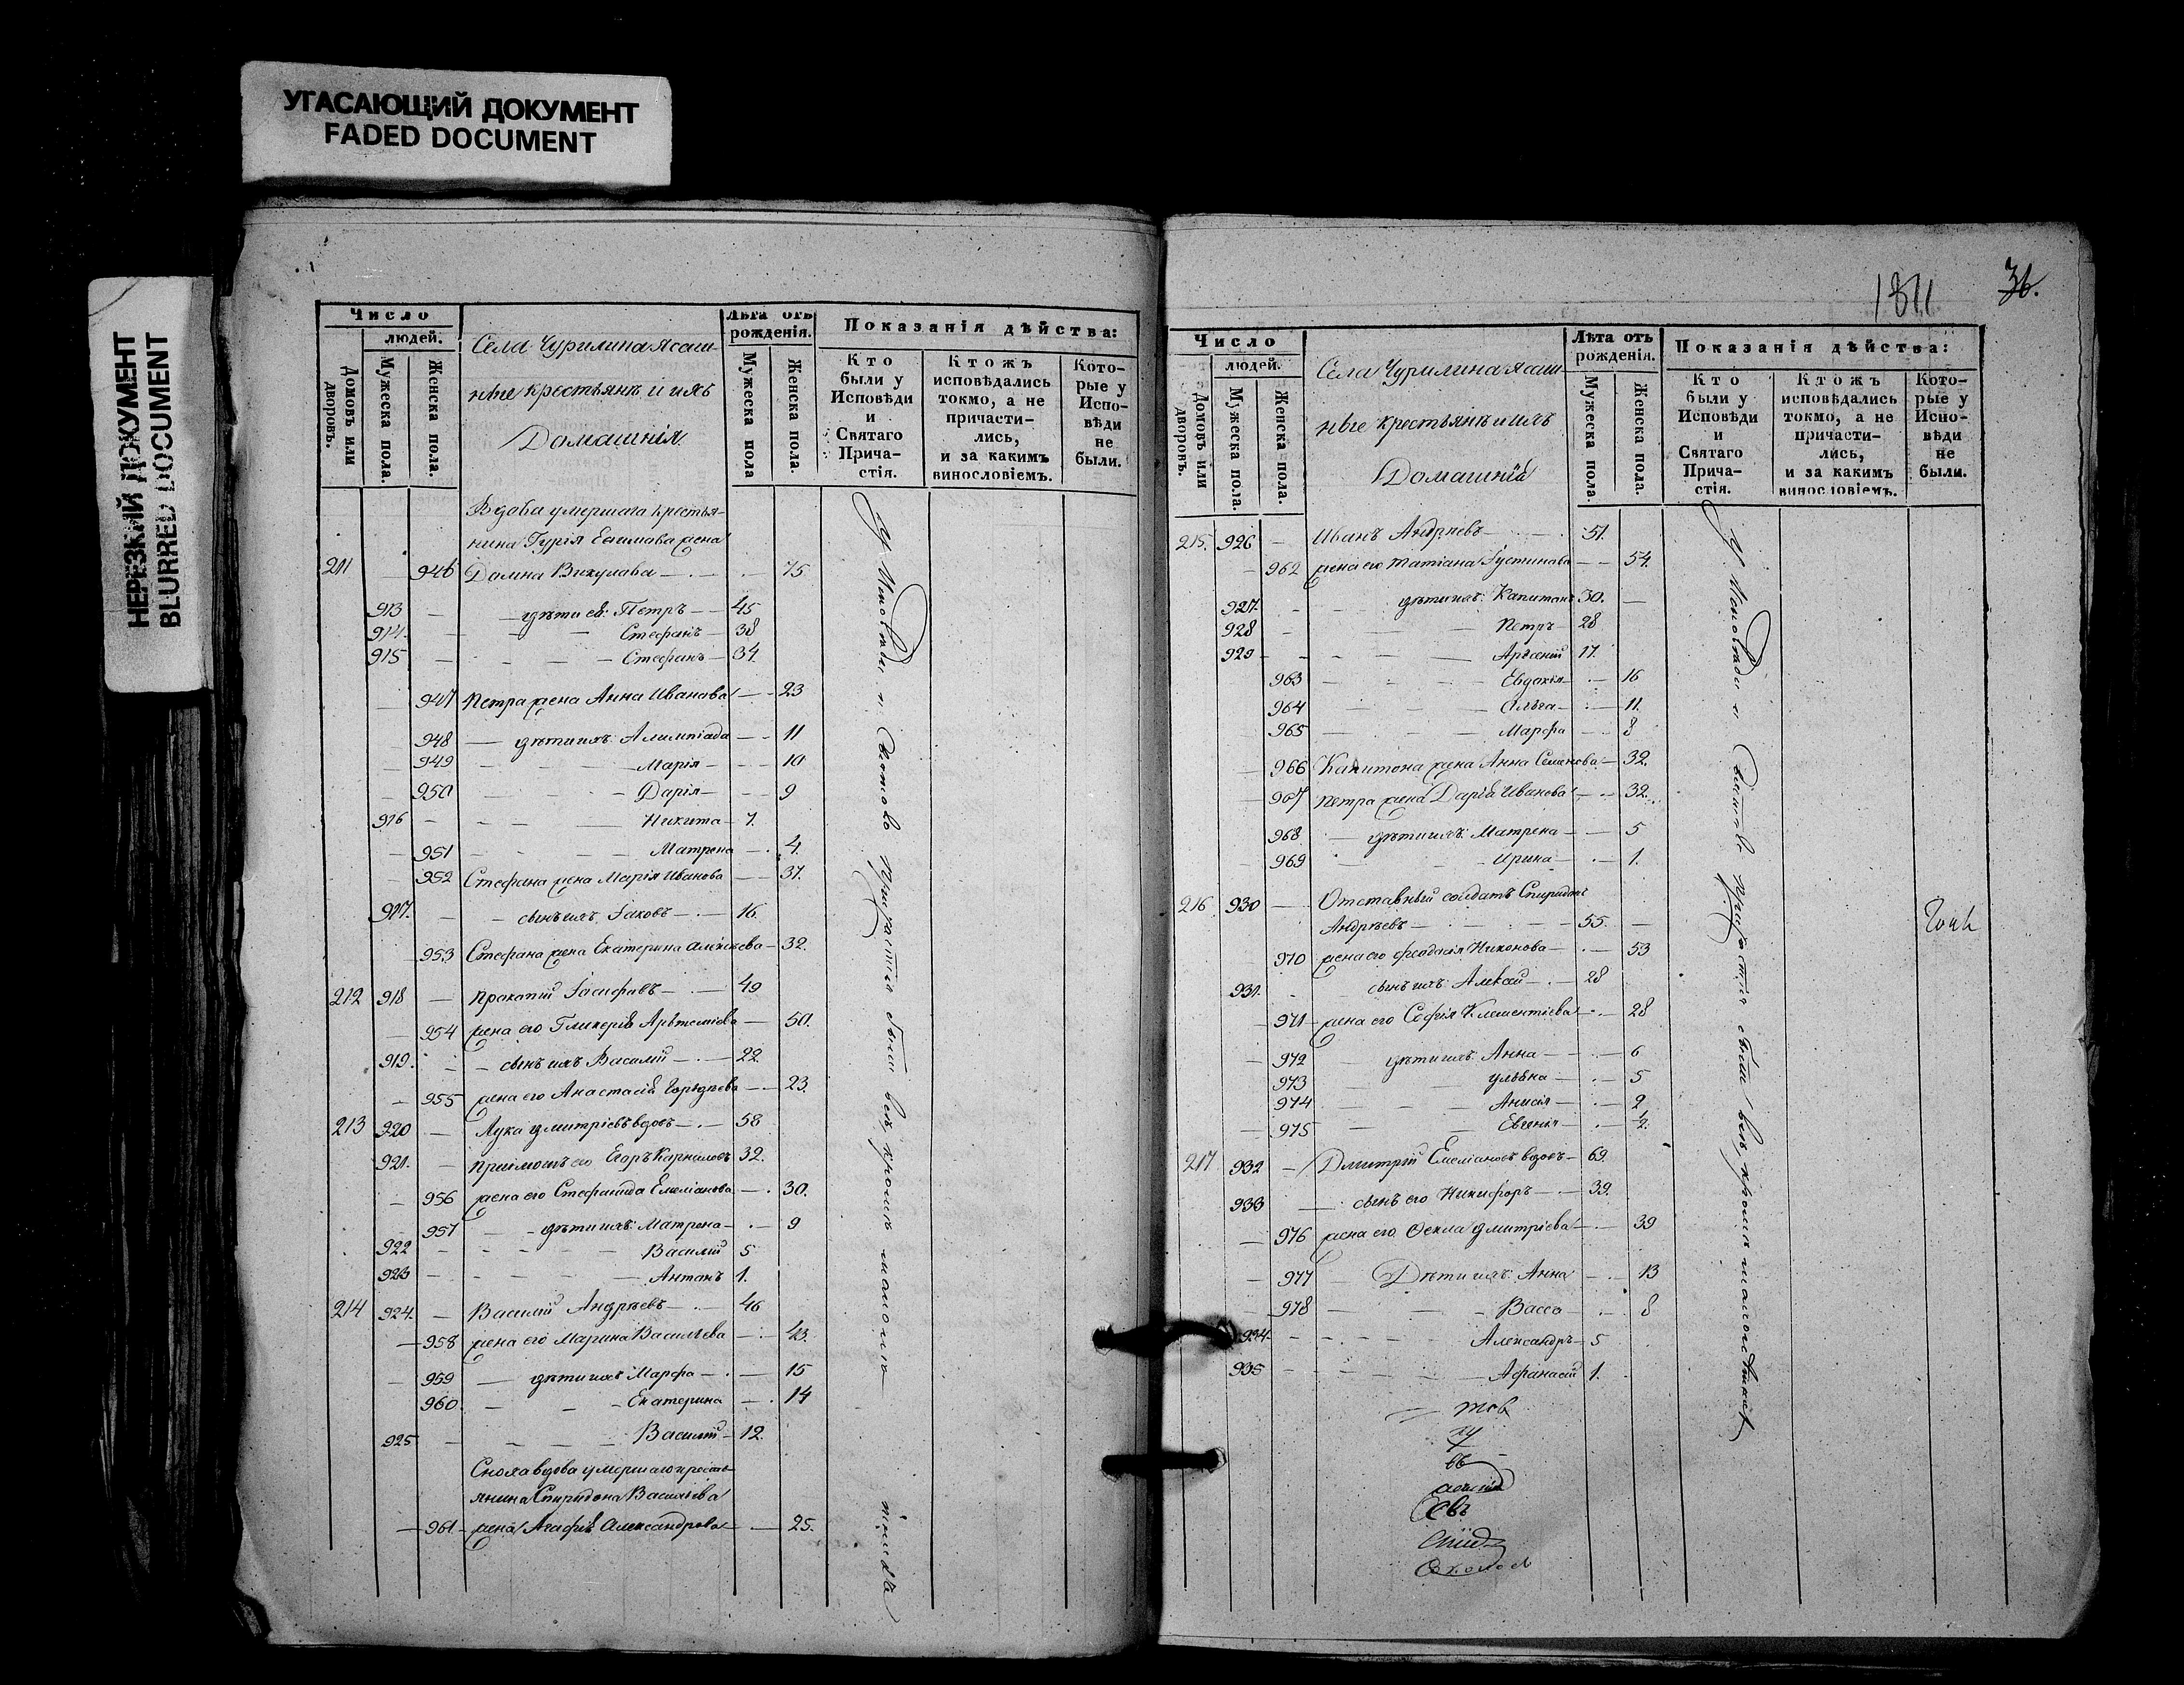 УГАСАЮЩИЙ ДОКУМЕНТ
FADED DOCUMENT
НЕРЕЗКИЙ ДОКУМЕНТ
BLURRED DOCUMENT
Число
людей.
Домовъ или дворовъ.
Мужеска пола.
Женска пола.
Села Чурилина ясаш-
ные крестьянъ и ихъ
Домашнія
Лѣта отъ рожденія.
Мужеска пола
Женска пола.
Показанія дѣйства:
Кто были у Исповѣди и Святаго Прича-стія.
Ктожъ исповѣдались токмо, а не причасти-лись, и за какимъ винословіемъ.
Кото-рые у Испо-вѣди не были.
Вдова умершаго крестья-
нина Гурія жена
211 946 Домна Викулава 75
913 дѣти ев: Петръ 45
914. Стефанъ 38
915 Стефанъ 34.
947 Петра жена Анна Иванова 23
948 дѣти ихъ Алимпіада 11
949 Марія 10
950 Дарія 9
916 Никита 7.
951 Матрена 4.
952 Стефана жена Марія Иванова 37.
917. сынъ ихъ Іаковъ 16.
953 Стефана жена Екатерина Алѣксѣева 32.
212 918 Пракапій Іасифавъ 49
954 жена его Гликерія Артеміева 50.
919. сынъ ихъ Василій 22.
955 жена его Анастасія 23.
213 920 Лука Дмитріевъ вдовъ 58
921. пріимышъ его Егоръ Карниловъ 32.
956 жена его Стефанида Емеліанова 30.
957 дѣти ихъ Матрена 9
922 Василій 5
923 Антонъ 1.
214 924. Василій Андрѣевъ 46
958 жена его Марина Васильева 43.
959 дѣти ихъ Марфа 15
960 Екатерина 14
925 Василій 12.
Сноха вдова умершаго кресть-
янина Спиридона Васильева
961 жена Агафія Александрова 25.
У Исповѣди и Святаго Причастія были всѣ, кромѣ малолѣтнихъ
1811
36.
Число
людей.
Домовъ или дворовъ.
Мужеска пола.
Женска пола.
Села Чурилина ясаш-
ные крестьянъ и ихъ
Домашнія
Лѣта отъ рожденія.
Мужеска пола.
Женска пола.
Показанія дѣйства:
Кто были у Исповѣди и Святаго Прича-стія.
Ктожъ исповѣдались токмо, а не причасти-лись, и за какимъ винословіемъ.
Кото-рые у Испо-вѣди не были.
215. 926 Иванъ Андрѣевъ 51.
962 жена его Татіана Іустинова 54.
927. дѣти ихъ: Капитонъ 30.
928 Петръ 28
929 Арсеній 17.
963 Евдокія 16
964 Ольга 11.
965 Марфа 8
966 Капитона жена Анна Семенова 32.
967 Петра жена Дарія Иванова 32.
968. дѣти ихъ: Матрена 5
969 Ирина 1.
216. 930 Отставный солдатъ Спиридонъ
Андрѣевъ 55.
970 жена его Феодосія Никонова 53
931. сынъ ихъ Алексій 28
971 жена его Софія Клементіева 28
972 дѣти ихъ: Анна 6
973 Ульяна 5
974 Анисія 2
975 Евгенія 1/2.
217 932 Дмитрій Емеліановъ вдовъ 69.
933 сынъ его Никифоръ 39.
976 жена его Ѳекла Дмитріева 39
977 Дѣти ихъ: Анна 13
978 Васса 8
934 Александръ 5
935 Афанасій 1.
У Исповѣди и Святаго Причастія были всѣ, кромѣ малолѣтнихъ